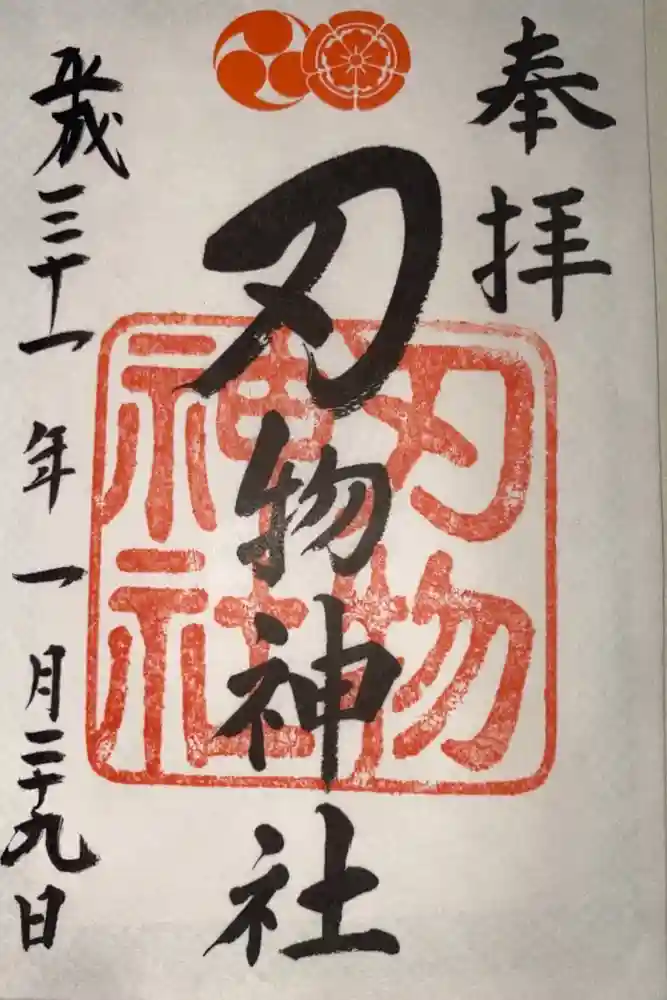 奉拝
刃物神社
刃物
神社
平成三十一年一月二十九日